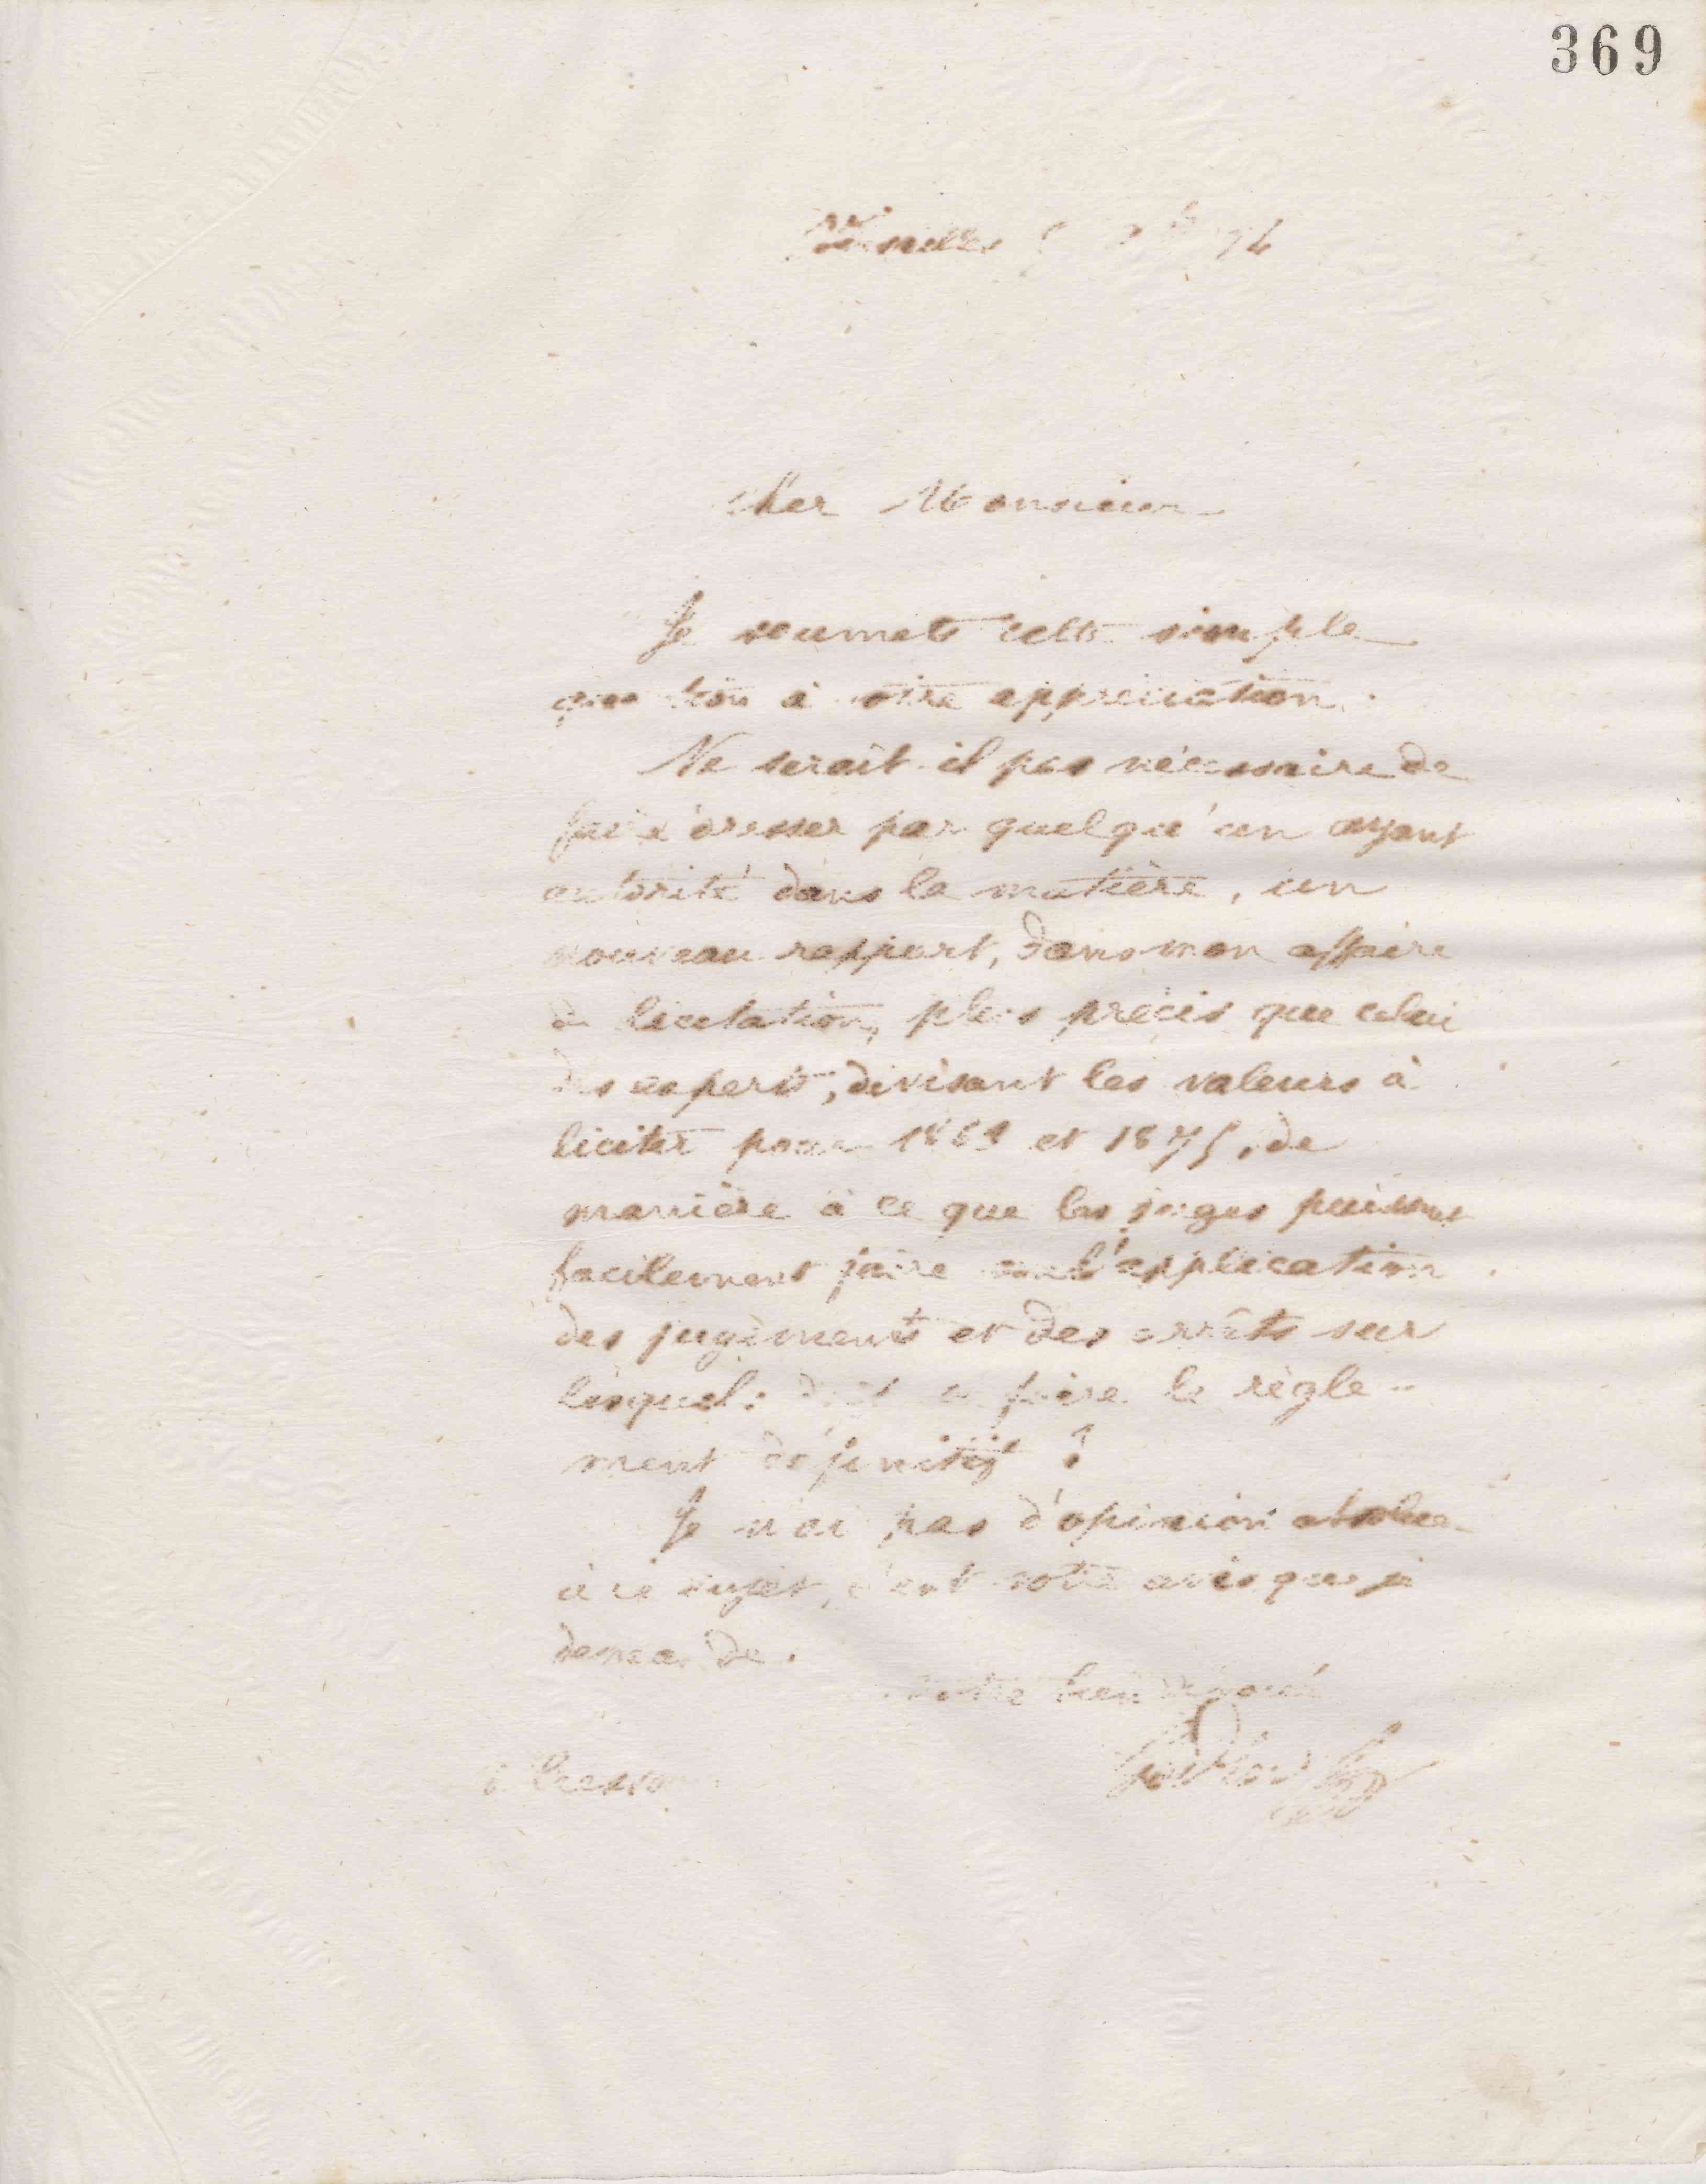 369
Versailles 9bre 74
Cher Monsieur
Je soumets cette simple
question à votre appréciation.
Ne serait-il pas nécessaire de
faire dresser par quelqu'un ayant
autorité dans la matière, un
nouveau rapport, dans mon affaire
de licitation, plus précis que celui
des experts, divisant les valeurs à
liciter pour 1869 et 1875, de
manière à ce que les juges puissent
facilement faire l'application
des jugements et des arrêts sur
lesquels doit se faire le règle-
ment définitif ?
Je n'ai pas d'opinion absolue
à ce sujet, c'est votre avis que je
demande.
votre bien dévoué
Godin
à Cresson